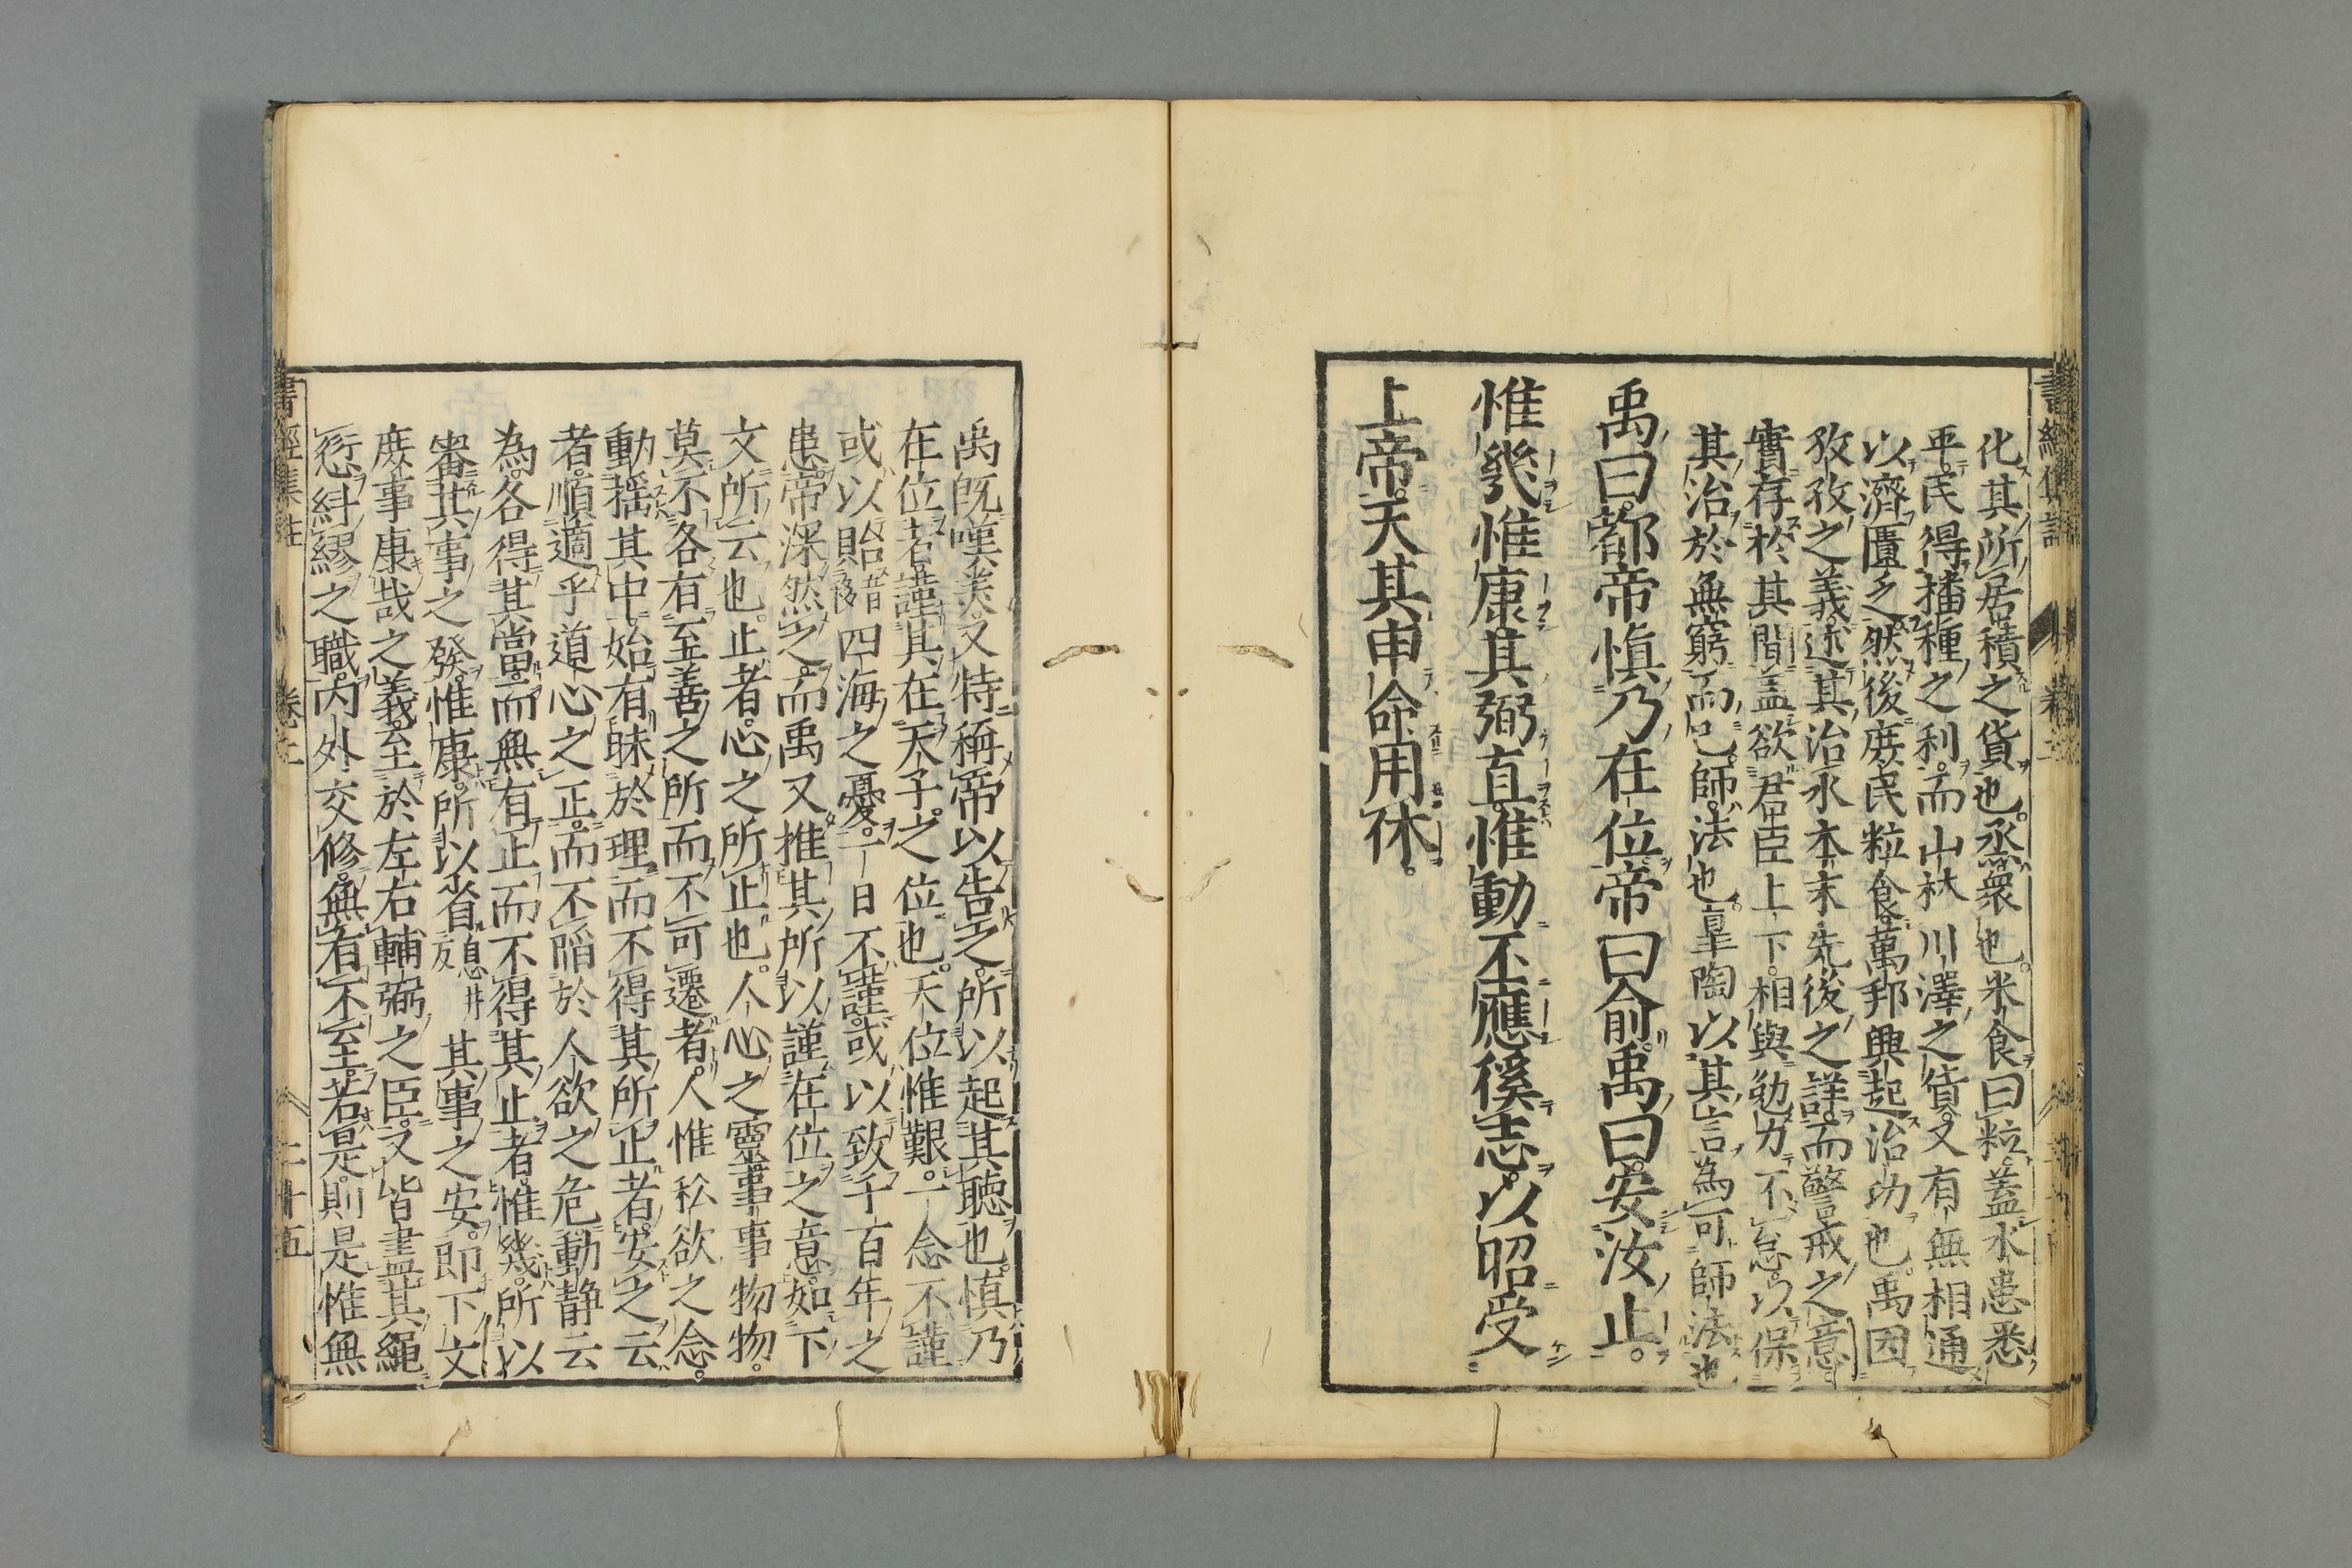 化其所居積之貨也。烝衆也。米食曰粒。蓋水患悉
平。民得播種之利。而山林川澤之貨。又有無相通
以濟匱乏。然後庶民粒食。萬邦興起治功也。禹因
孜孜之義。述其治水本末先後之詳。而警戒之意
實存於其間。蓋欲君臣上下。相與勉力不怠。以保
其治於無窮而已。師。法也。皐陶以其言為可師法也
禹曰。都帝慎乃在位帝曰俞。禹曰。安汝止。
惟幾惟康。其弼直。惟動丕應徯志。以昭受
上帝。天其申命用休。
禹既嘆美。又特稱帝以告之。所以起其聽也。慎乃
在位者。謹其在天子之位也。天位惟艱。一念不謹
或以貽四海之憂。一日不謹。或以致千百年之
患。帝深然之。而禹又推其所以謹在位之意。如下
文所云也。止者。心之所止也。人心之靈。事事物物。
莫不各有至善之所。而不可遷者。人惟私欲之念。
動揺其中。始有昧於理。而不得其所止者。安之云
者。順適乎道心之正。而不陷於人欲之危。動静云
為。各得其當。而無有止而不得其止者。惟幾。所以
審其事之發。惟康。所以省其事之安。即下文
庶事康哉之義。至於左右輔弼之臣。又皆盡其繩
愆糾繆之職。内外交修。無有不至。若是則是惟無
書經集註 卷二 二十五